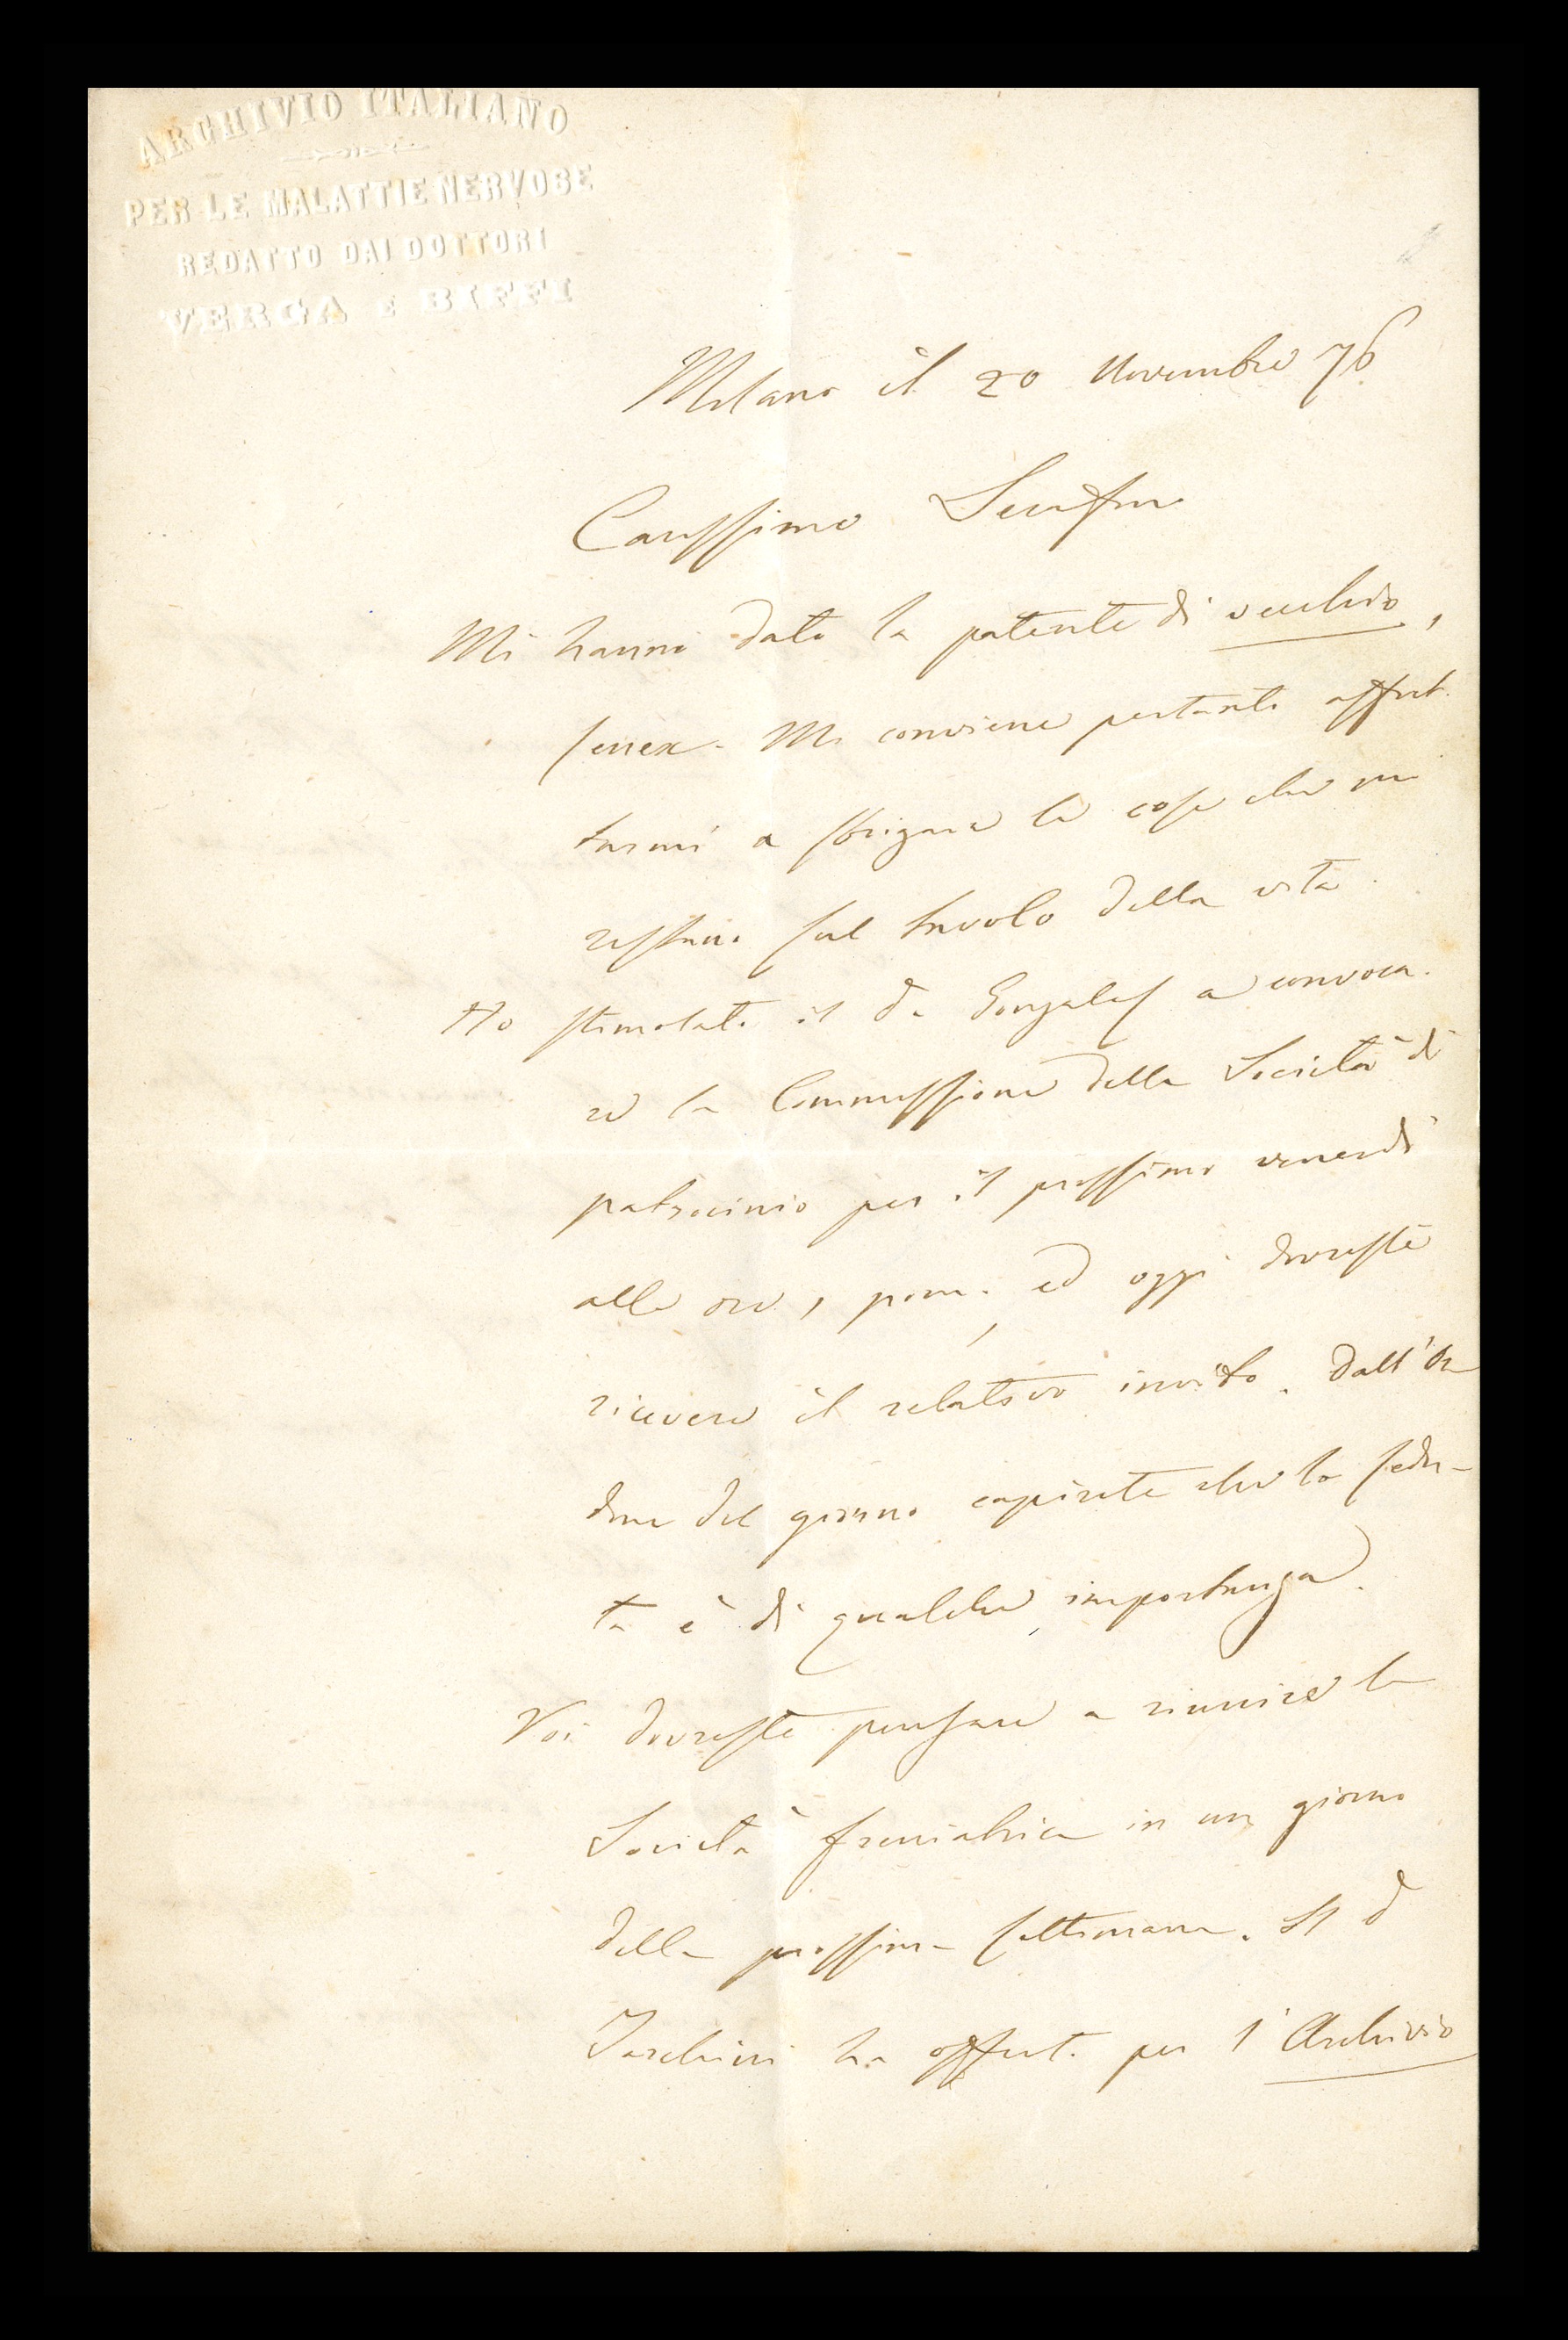 ARCHIVIO ITALIANO
PER LE MALATTIE NERVOSE
REDATTO DAI DOTTORI
VERGA E BIFFI
Milano il 20 Novembre 76
Carissimo Serafino
Mi hanno dato la patente di vecchio,
senex. Mi conviene pertanto affret-
tarmi a sbrigare le cose che mi
restano sul tavolo della vita.
Ho stimolato il Dr Gonzales a convoca-
re la Commissione della Società di
patrocinio per il prossimo venerdì
alle ore 1 pom. ed oggi dovreste
ricevere il relativo invito. Dall'Or
dine del giorno capirete che la sedu-
ta è di qualche importanza.
Voi dovreste pensare a riunire la
Società freniatrica in un giorno
della prossima settimana. Il D
Tarchini ha offerto per l'Archivio